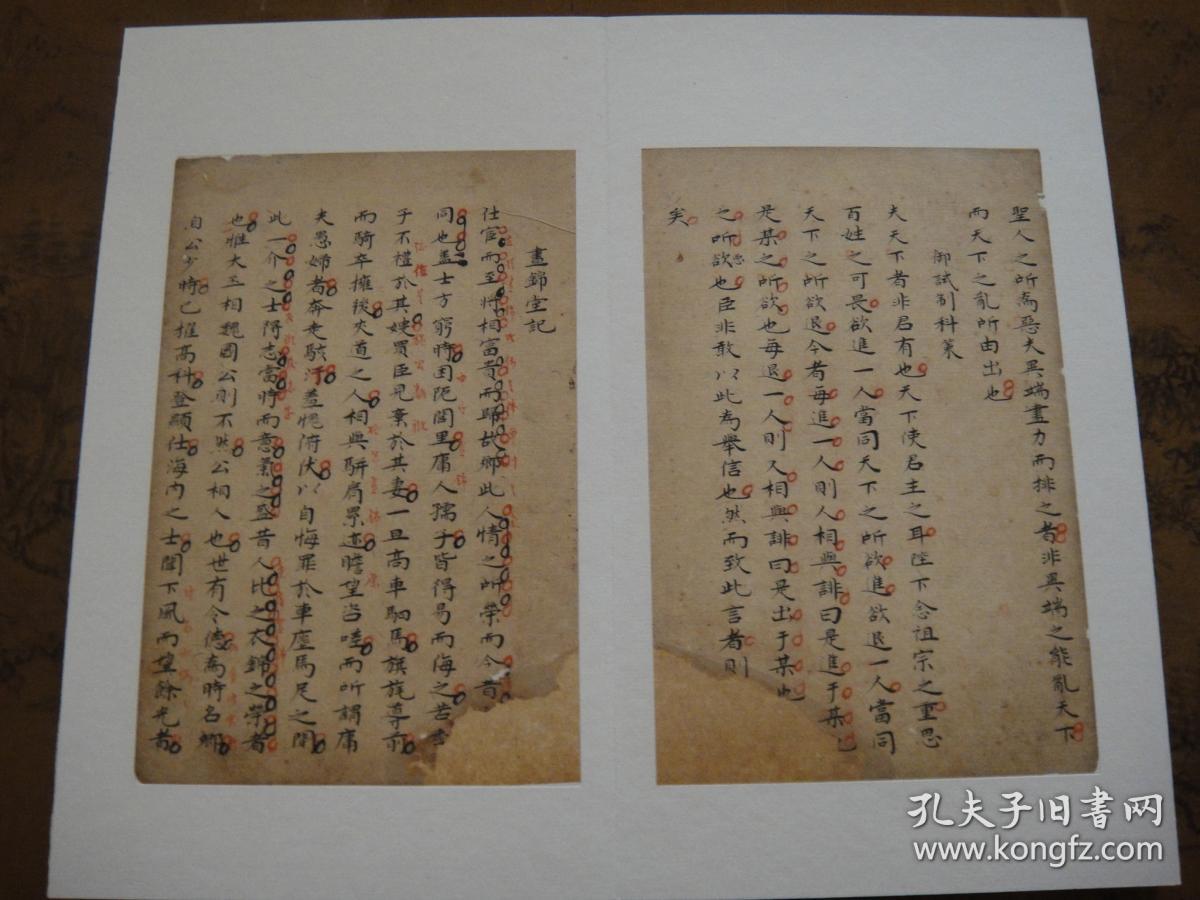 聖人之所為惡夫異端盡力而排之者非異端之能亂天下
而天下之亂所由出也
御試制科策
夫天下者非君有也天下使君主之耳陛下念祖宗之重思
百姓之可畏欲進一人當同天下之所欲進欲退一人當同
天下之所欲退今者每進一人則人相與誹曰是進于某也
是某之所欲也每退一人則又相與誹曰是出于某也
之所惡也臣非敢以此為舉信也然而致此言者則
矣
晝錦堂記
仕宦而至將相富貴而歸故鄉此人情之所榮而今昔
同也盖士方窮時困阨閭里庸人孺子皆得易而侮之若季
子不禮於其嫂買臣見棄於其妻一旦高車駟馬旗旄導前
而騎卒擁後夾道之人相與駢肩累迹瞻望咨嗟而所謂庸
夫愚婦者奔走駭汗羞愧俯伏以自悔罪於車塵馬足之間
此一介之士得志當時而意氣之盛昔人比之衣錦之榮者
也惟大丞相魏國公則不然公相人也世有令德為時名卿
自公少時已擢高科登顯仕海內之士聞下風而望餘光者
孔夫子旧书网
www.kongfz.com